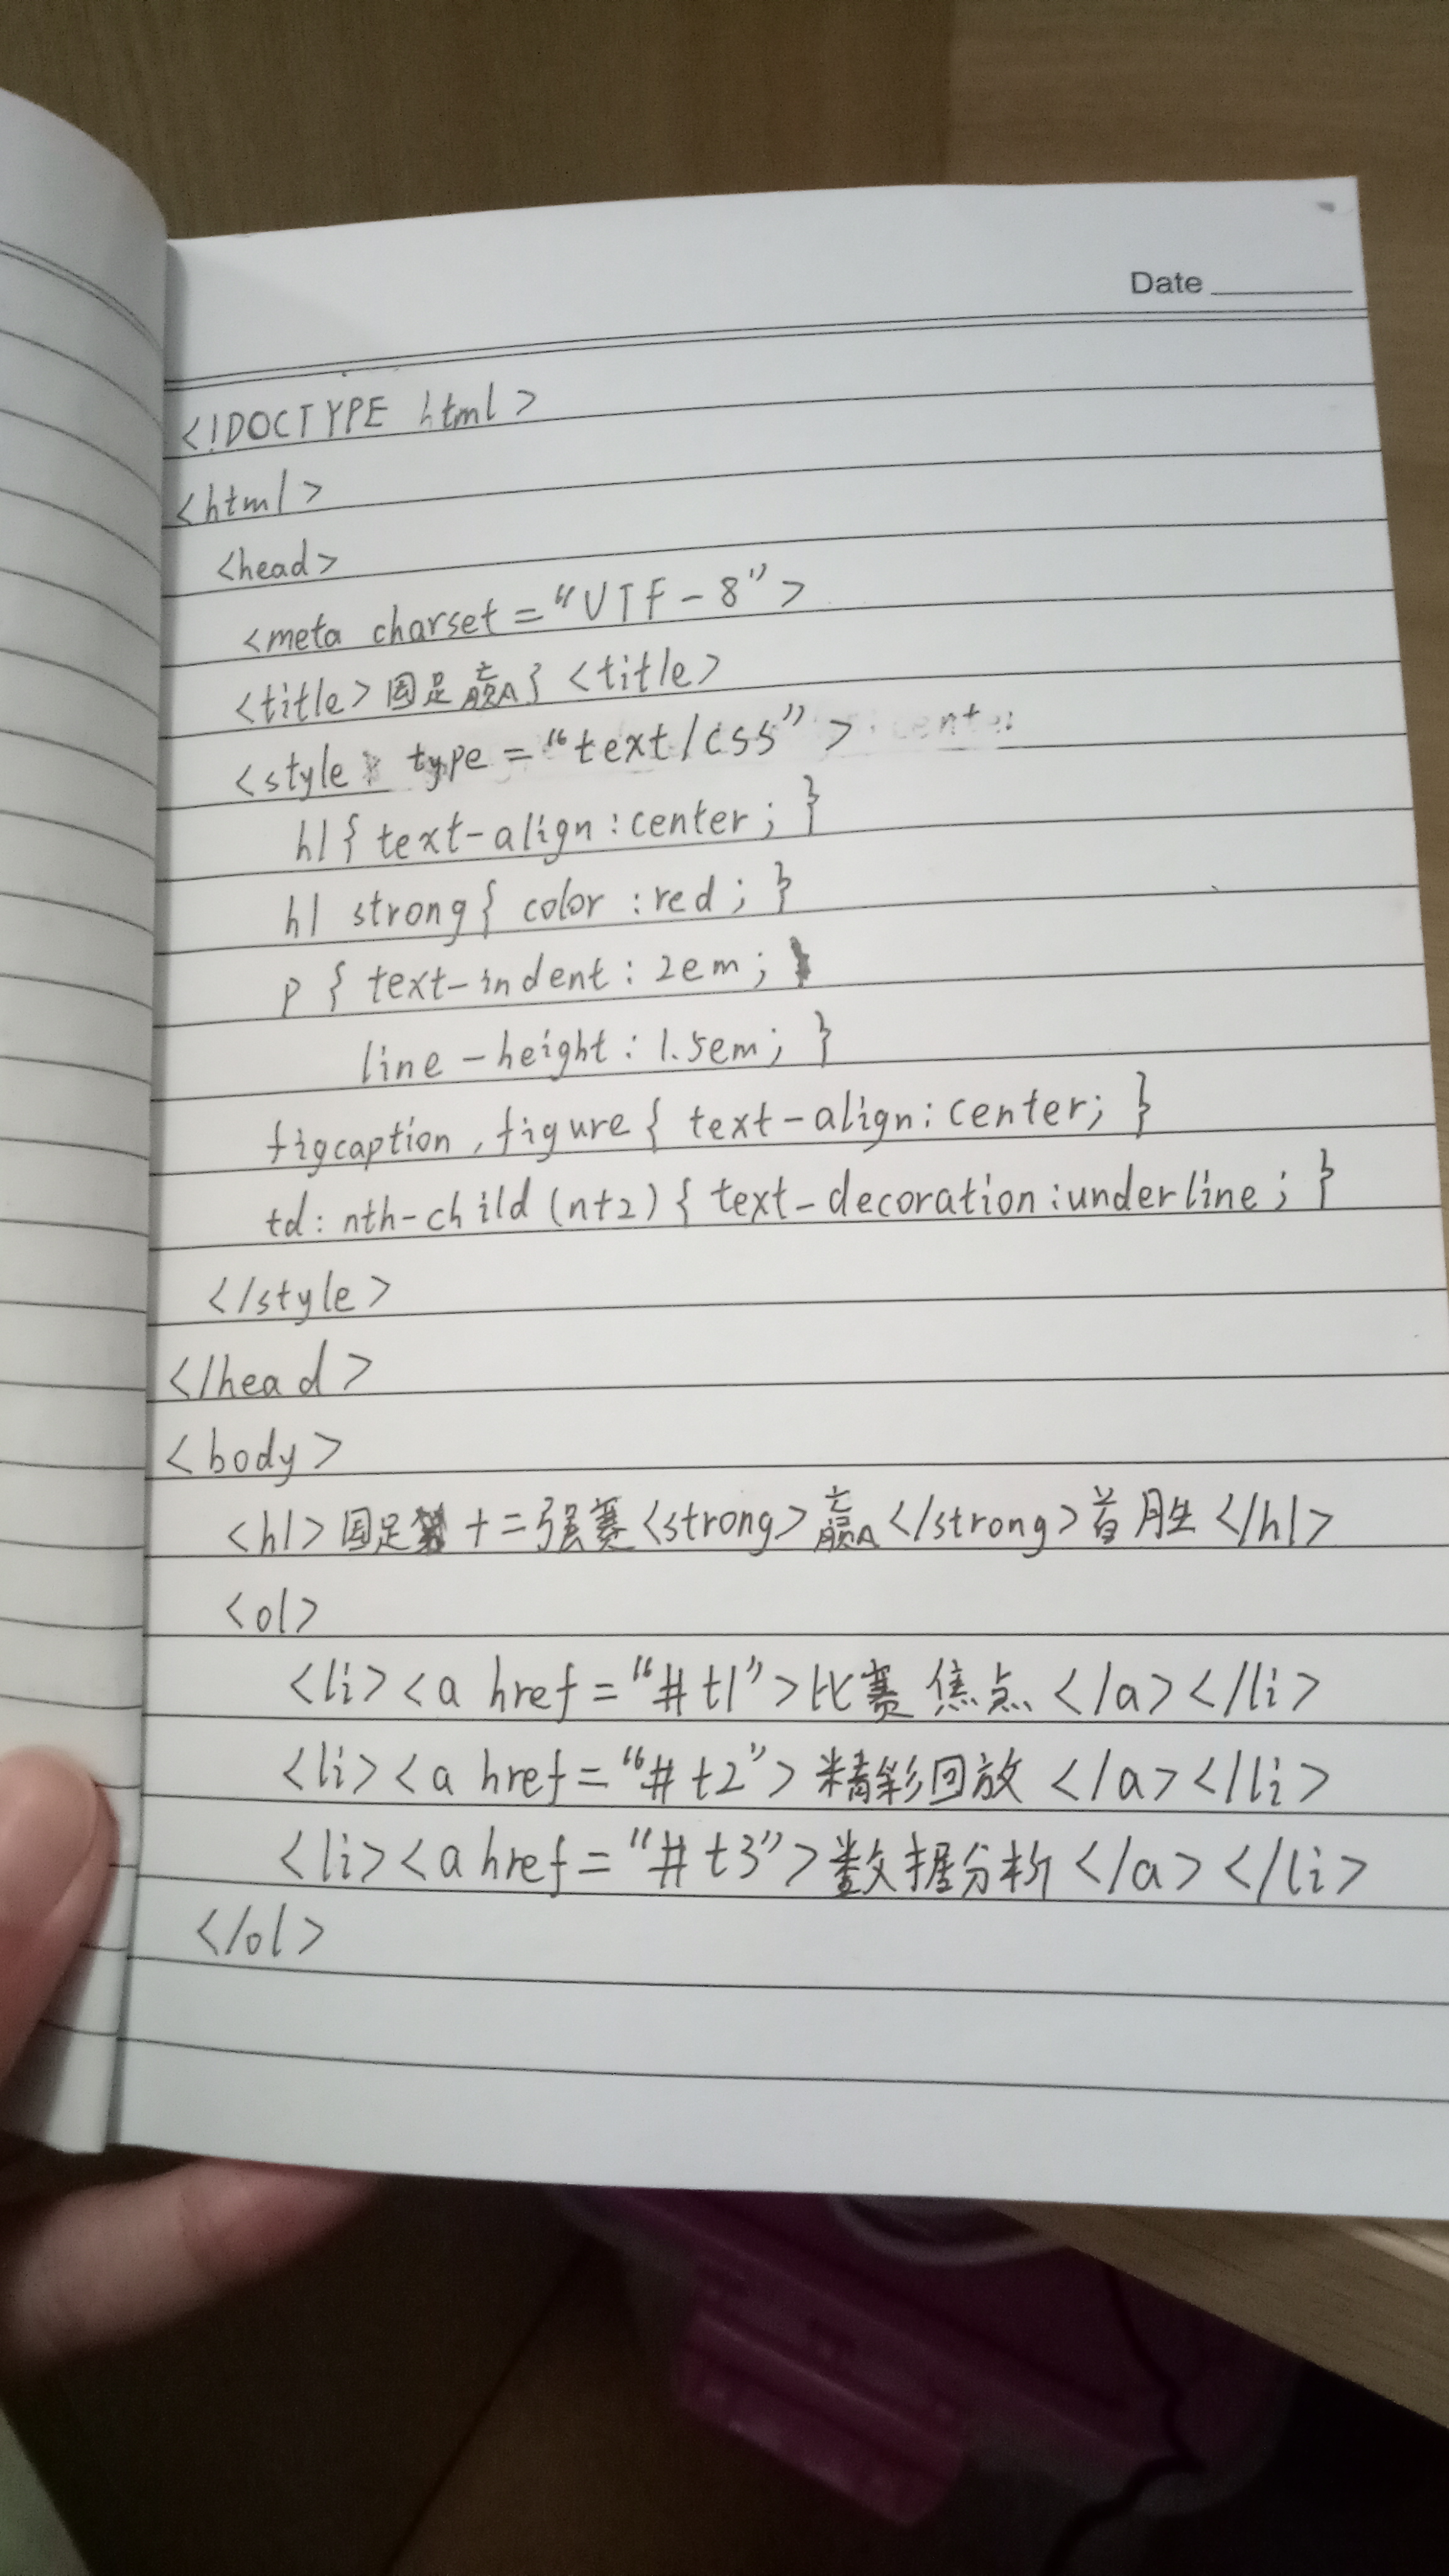 Date
<!DOCTYPE html>
<html>
<head>
<meta charset="UTF-8">
<title>国足赢了<title>
<style type="text/css">
h1{text-align:center;}
h1 strong{color:red;}
p{text-indent:2em;
line-height:1.5em;}
figcaption,figure{text-align:center;}
td:nth-child(n+2){text-decoration:underline;}
</style>
</head>
<body>
<h1>国足十二强赛<strong>赢</strong>首胜</h1>
<ol>
<li><a href="#t1">比赛焦点</a></li>
<li><a href="#t2">精彩回放</a></li>
<li><a href="#t3">数据分析</a></li>
</ol>